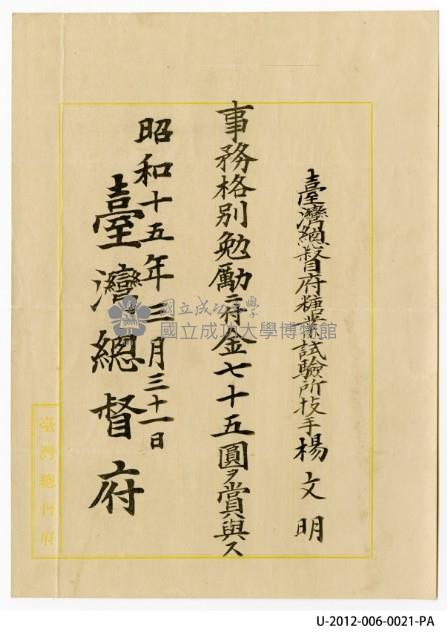 臺灣總督府糖業試驗所技手楊文明
事務格別勉勵ニ付金七十五圓ヲ賞與ス
昭和十五年三月三十一日
臺灣總督府
臺灣總督府
國立成功大學
國立成功大學博物館
U-2012-006-0021-PA